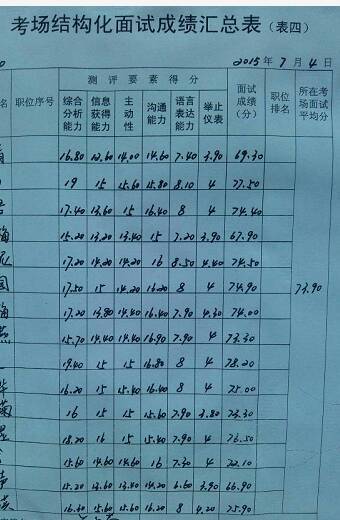 考场结构化面试成绩汇总表（表四）
2015年7月4日
名 职位序号 测评要素得分 面试成绩(分) 职位排名 所在考场面试平均分
综合分析能力 信息获得能力 主动性 沟通能力 语言表达能力 举止仪表
16.80 12.60 14.00 14.60 7.40 3.90 69.30
19 15 15.60 15.80 8.10 4 77.50
17.40 13.60 15 16.40 8 4 74.40
梅 15.20 13.20 13.40 15 7.20 3.90 67.90
17.20 14.20 14.20 16 8.50 4.40 74.50
国 17.50 15 14.20 16.20 8 4 74.90 73.90
梅 17.20 13.80 14.40 16.40 7.90 4.30 74.00
燕 15.70 14.40 14.40 16.90 7.90 4 73.30
19.40 15 15 16.80 8 4 78.20
16.20 15 15.40 16.40 8 4 75.00
菊 16 15 15 15.60 7.90 3.80 73.30
18.20 16 15 15.40 7.90 4 76.50
15.60 14.60 14.60 16 7.30 4 72.10
15.20 13.60 13.40 14.20 6.60 3.90 66.90
16.30 15.60 15 15.80 8 4.20 75.90